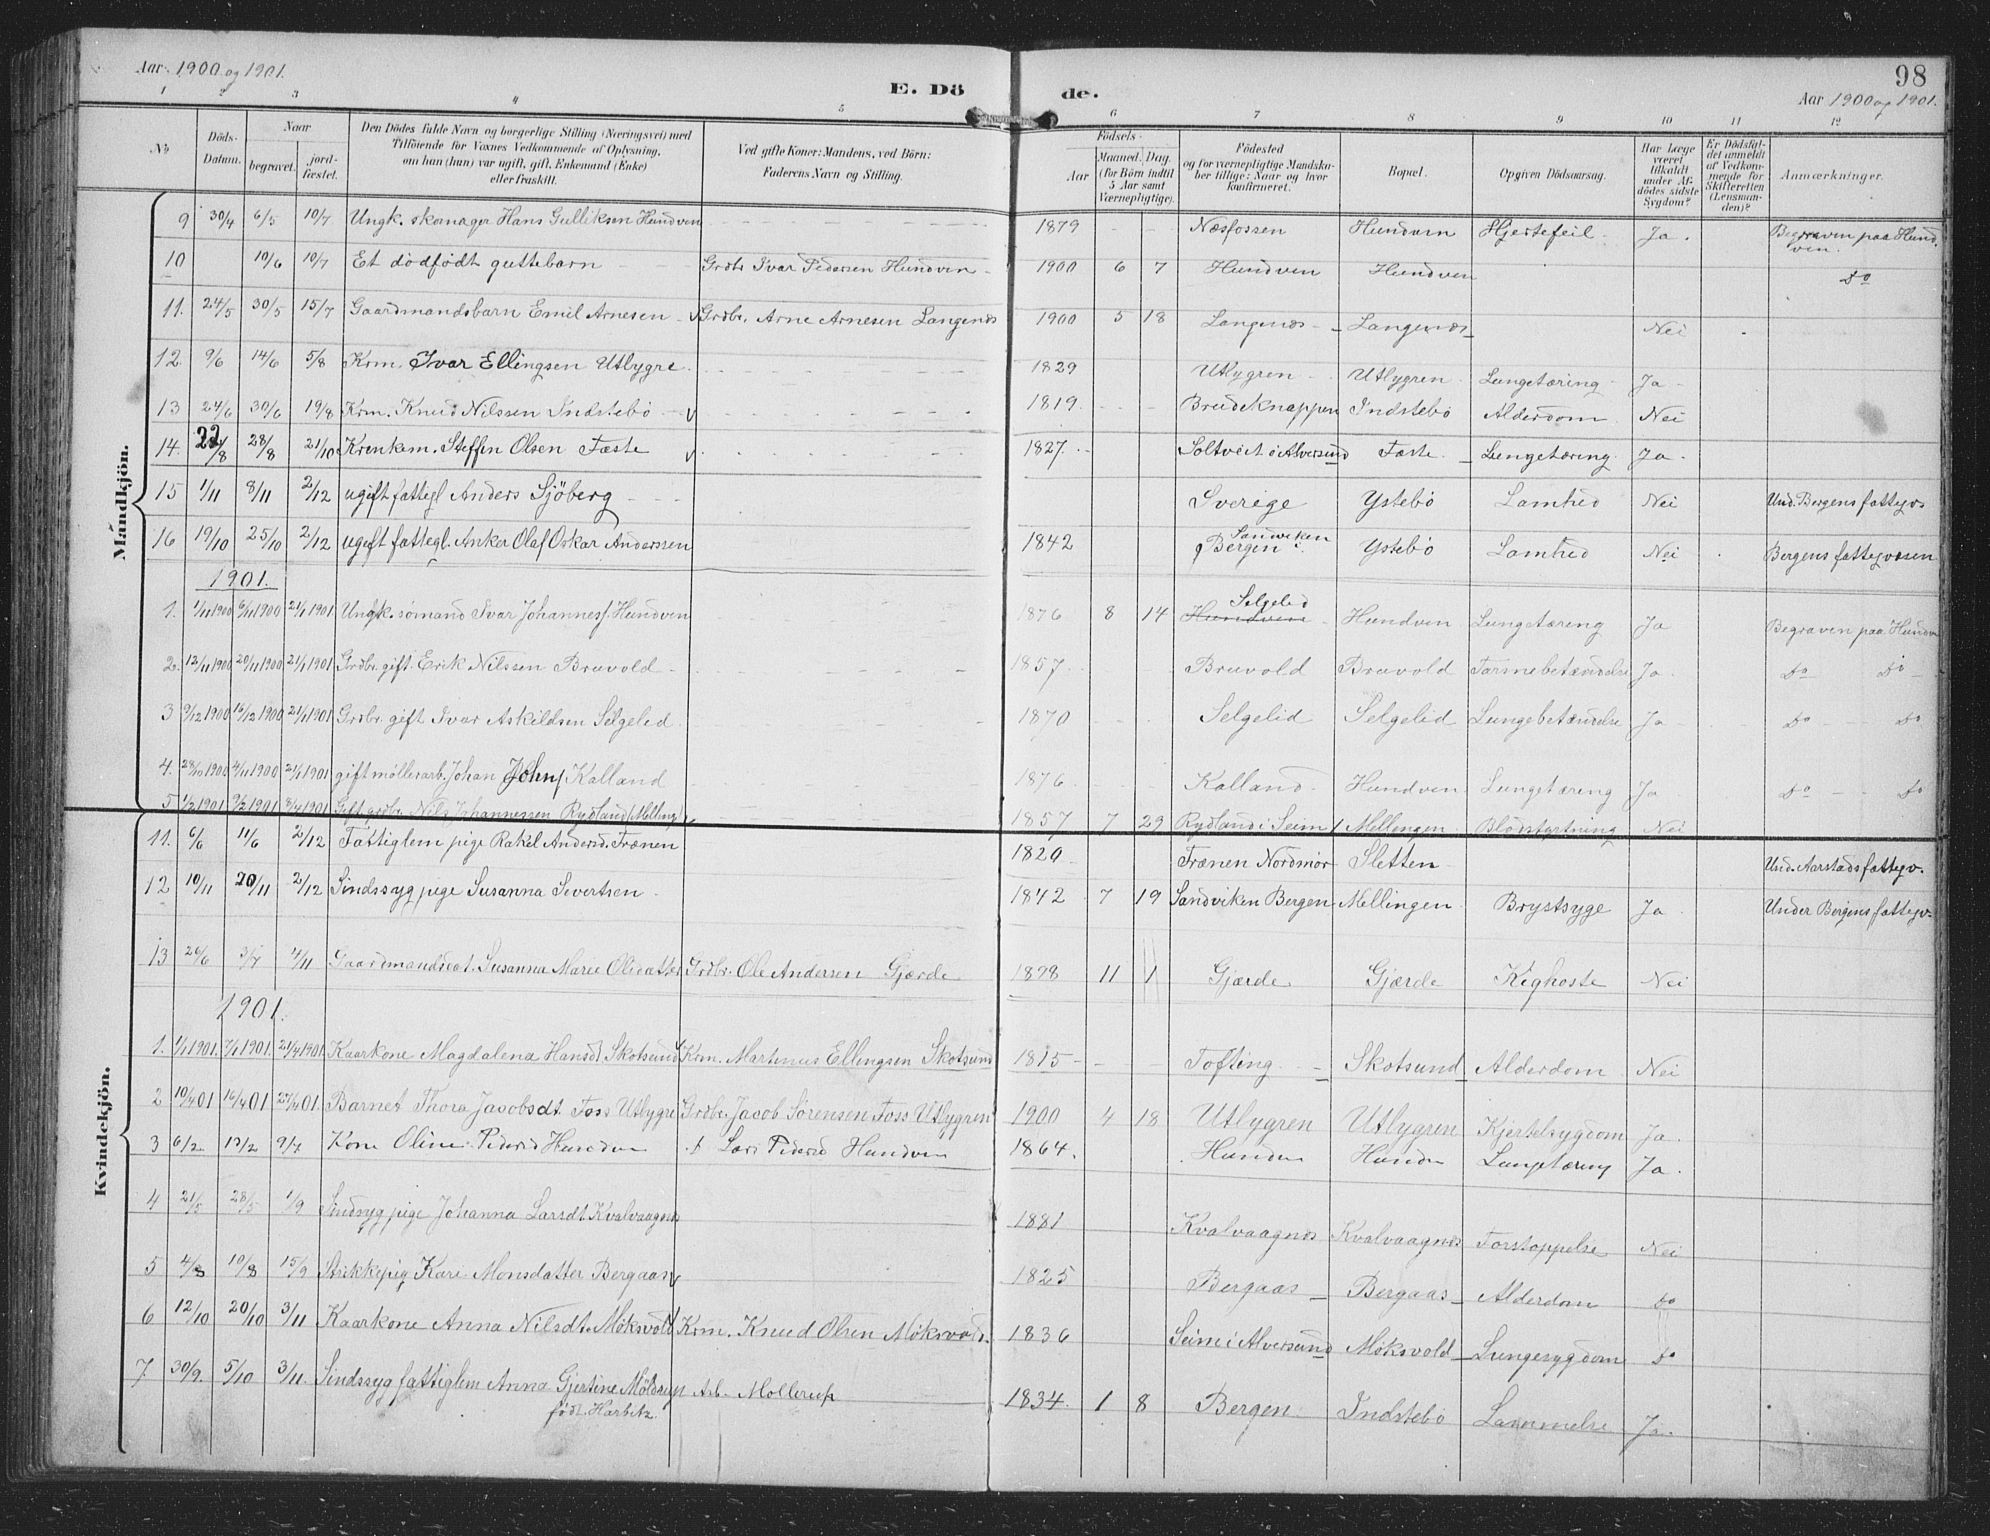 Aar 1900 og 1901.
E. Dö
de.
98
Aar 1900 og 1901.
1 2 3 4 5 6 7 8 9 10 11 12
No
Döds-Datum.
Naar
begravet.
jord-fæstet.
Den Dödes fulde Navn og borgerlige Stilling (Næringsvei) med
Tilföiende for Voxnes Vedkommende af Oplysning,
om han (hun) var ugift, gift, Enkemand (Enke)
eller fraskilt.
Ved gifte Koner: Mandens, ved Börn:
Faderens Navn og Stilling.
Födsels-
Aar
Maaned.
Dag.
(for Börn indtil
5 Aar samt
Værnepligtige).
Födested
og for værnepligtige Mandskaber tillige: Naar og hvor
konfirmeret.
Bopæl.
Opgiven Dödsaarsag.
Har Læge
været
tilkaldt
under Afdödes sidste
Sygdom?
Er Dödsfaldet anmeldt
af Vedkommende for
Skifteretten
(Lensmanden)?
Anmærkninger.
Mandkjön.
9 30/4 6/5 10/7 Ungk. skomager Hans Gulliksen Hundven 1879 Næsfossen Hundven Hjertefeil Ja. Begraven paa Hundven.
10 10/6 10/7 Et dödfödt guttebarn Grdbr Ivar Pedersen Hundven 1900 6 7 Hundven Hundven Do
11. 24/5 30/5 15/7 Gaardmandsbarn Emil Arnesen Grdbr. Arne Arnesen Langenæs 1900 5 18 Langenæs Langenæs Nei
12. 9/6 14/6 5/8 Krm. Ivar Ellingsen Utlygre 1829 Utlygren Utlygren Lungetæring Ja
13 24/6 30/6 19/8 Krm. Knud Nilssen Indstebö 1819. Brudeknappen Indstebö Alderdom Nei
14. 22/8 28/8 21/10 Steffen Olsen Fæste 1827. Soltveit i Alversund Fæste Lungetæring Ja.
15 1/11 8/11 2/12 ugift fattigl Anders Sjöberg Sverige Ystebö Lamhed Nei Und. Bergens fattigv.
16 19/10 25/10 2/12 ugift fattigl. Anker Olaf Oskar Anderssen 1842 Sandviken Bergen Ystebö Lamhed Nei Bergens fattigvæsen
1901.
1. 1/11 1900 6/11 1900 21/1 1901 Ungk. sömand Ivar Johannesf. Hundven 1876 8 14 Hundven Selgelid Hundven Lungetæring Ja Begraven paa Hundv
2. 12/11 1900 20/11 1900 21/1 1901 Grdbr. gift. Erik Nilssen Bruvold 1857 Bruvold Bruvold Tarmebetændelse Ja Do Do
3 9/12 1900 16/12 1900 21/1 1901 Grdbr. gift Ivar Askildsen Selgelid 1870 Selgelid Selgelid Lungebetændelse Ja Do Do
4. 28/10 1900 4/11 1900 21/1 1901 gift möllerarb. Johan Johnf Kalland 1876 Kalland Hundven Lungetæring Ja Do Do
5 1/2 1901 9/2 1901 8/4 1901 Gift grdbr. Nils Johannessen Rydland (Melling) 1857 7 29 Rydland i Seim Mellengen Blodstyrtning Nei
Kvindekjön.
11. 6/6 11/6 2/12 Fattiglem pige Rakel Andersd. Frænen 1820 Frænen Nordmör Sletten Und. Aarstads fattigv.
12 10/11 20/11 2/12 Sindssyg pige Susanna Severtsen 1842 7 19 Sandviken Bergen Mellingen Brystsyge Ja Under Bergens fattigv.
13 26/6 3/7 4/11 Gaardmandsdat. Susanna Marie Olsdatter Grdbr. Ole Andersen Gjærde 1898 11 1 Gjærde Gjærde Kighoste Nei
1901.
1. 1/1 1901. 7/1 1901. 21/4 1901 Kaarkone Magdalena Hansd. Skotsund Krm. Martinus Ellingsen Skotsund 1815 Tofting Skotsund Alderdom Nei
2 10/4 01 16/4 01 27/4 01. Barnet Thora Jacobsdt. Foss Utlygre Grdbr. Jacob Sörensen Foss Utlygren 1900 4 18 Utlygren Utlygren Kjertelsygdom Ja
3 6/2 13/2 9/4 Kone Oline Pedersd Hundven Lars Hundven 1864. Hundven Hundven Lungetæring Ja.
4 21/5 28/5 1/9 Sindsyg pige Johanna Larsdt. Kvalvaagnæs 1881 Kvalvaagnæs Kvalvaagnæs Forstoppelse Nei
5 4/8 10/8 15/9 Strikkepig Kari Monsdatter Bergaas 1825 Bergaas Bergaas Alderdom Do
6 12/10 20/10 3/11 Kaarkone Anna Nilsdt. Möksvold Krm. Knud Olsen Möksvold. 1836 Seim i Alversund Möksvold Lungesygdom Do
7. 30/9. 5/10 3/11. Sindssyg fattiglem Anna Gjertine Möldrup Arb. Mollerup 1834. 1 8 Bergen Indstebö Lammelse Ja.
födt. Harbitz.